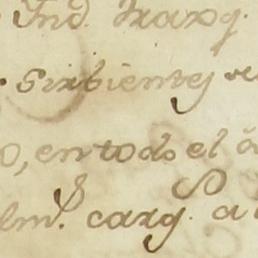 Ind. Traxg.
Sirbientes
o, en todo el
lm. carg. a